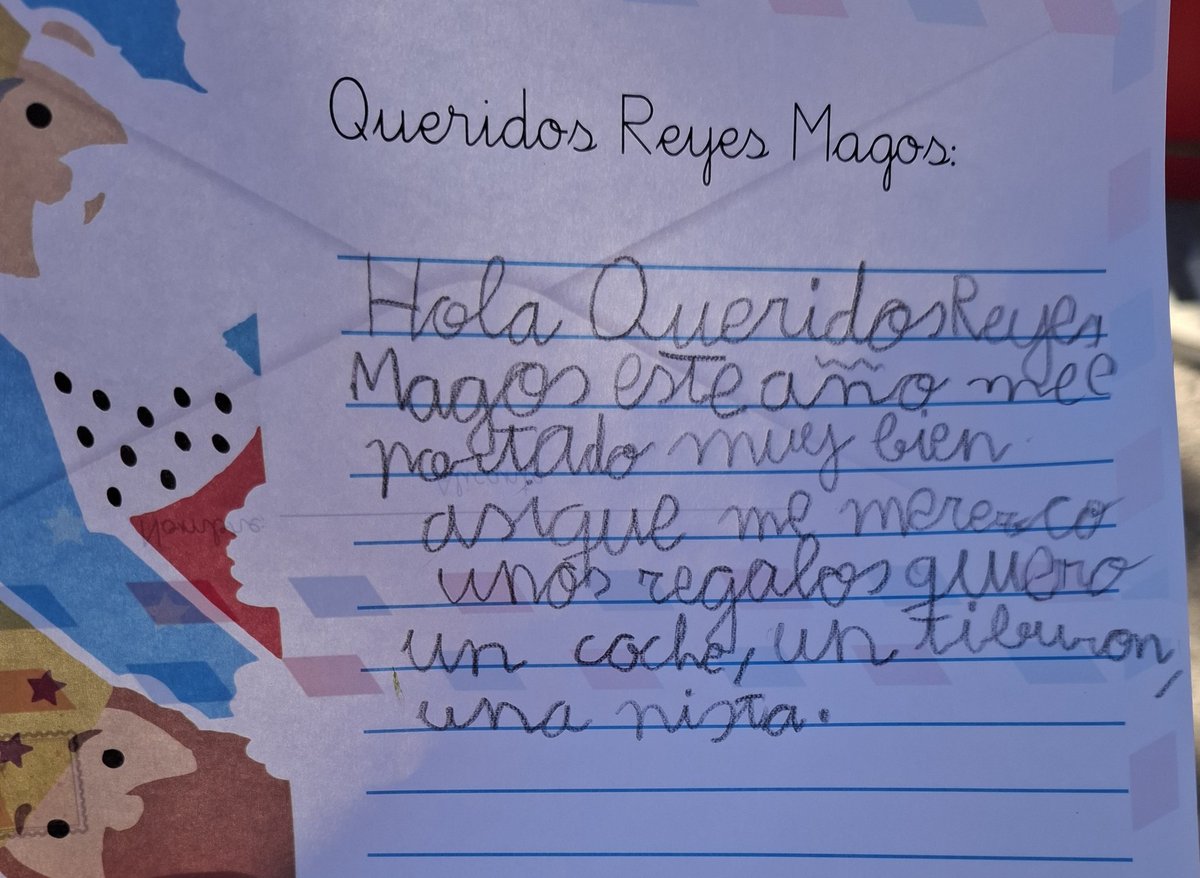 Queridos Reyes Magos:
Hola Queridos Reyes
Magos este año me e
portado muy bien
asique me merezco
unos regalos quiero
un coche, un tiburon,
una pista.